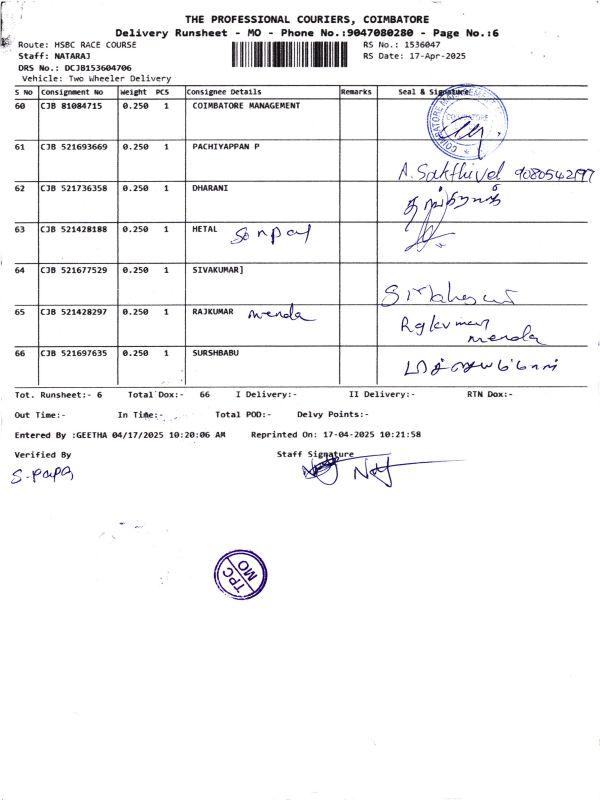 THE PROFESSIONAL COURIERS, COIMBATORE
Delivery Runsheet - MO - Phone No.:9047080280 - Page No.:6
Route: HSBC RACE COURSE RS No.: 1536047
Staff: NATARAJ RS Date: 17-Apr-2025
DRS No.: DCJB153604706
Vehicle: Two Wheeler Delivery
S No Consignment No Weight PCS Consignee Details Remarks Seal & Signature
60 CJB 81084715 0.250 1 COIMBATORE MANAGEMENT
61 CJB 521693669 0.250 1 PACHIYAPPAN P
A. Sakthivel
62 CJB 521736358 0.250 1 DHARANI
63 CJB 521428188 0.250 1 HETAL
64 CJB 521677529 0.250 1 SIVAKUMAR]
65 CJB 521428297 0.250 1 RAJKUMAR menda
Rajkumar
menda
66 CJB 521697635 0.250 1 SURSHBABU
Tot. Runsheet:- 6 Total Dox:- 66 I Delivery:- II Delivery:- RTN Dox:-
Out Time:- In Time:- Total POD:- Delvy Points:-
Entered By :GEETHA 04/17/2025 10:20:06 AM Reprinted On: 17-04-2025 10:21:58
Verified By Staff Signature
S. Papa
TPC
MO